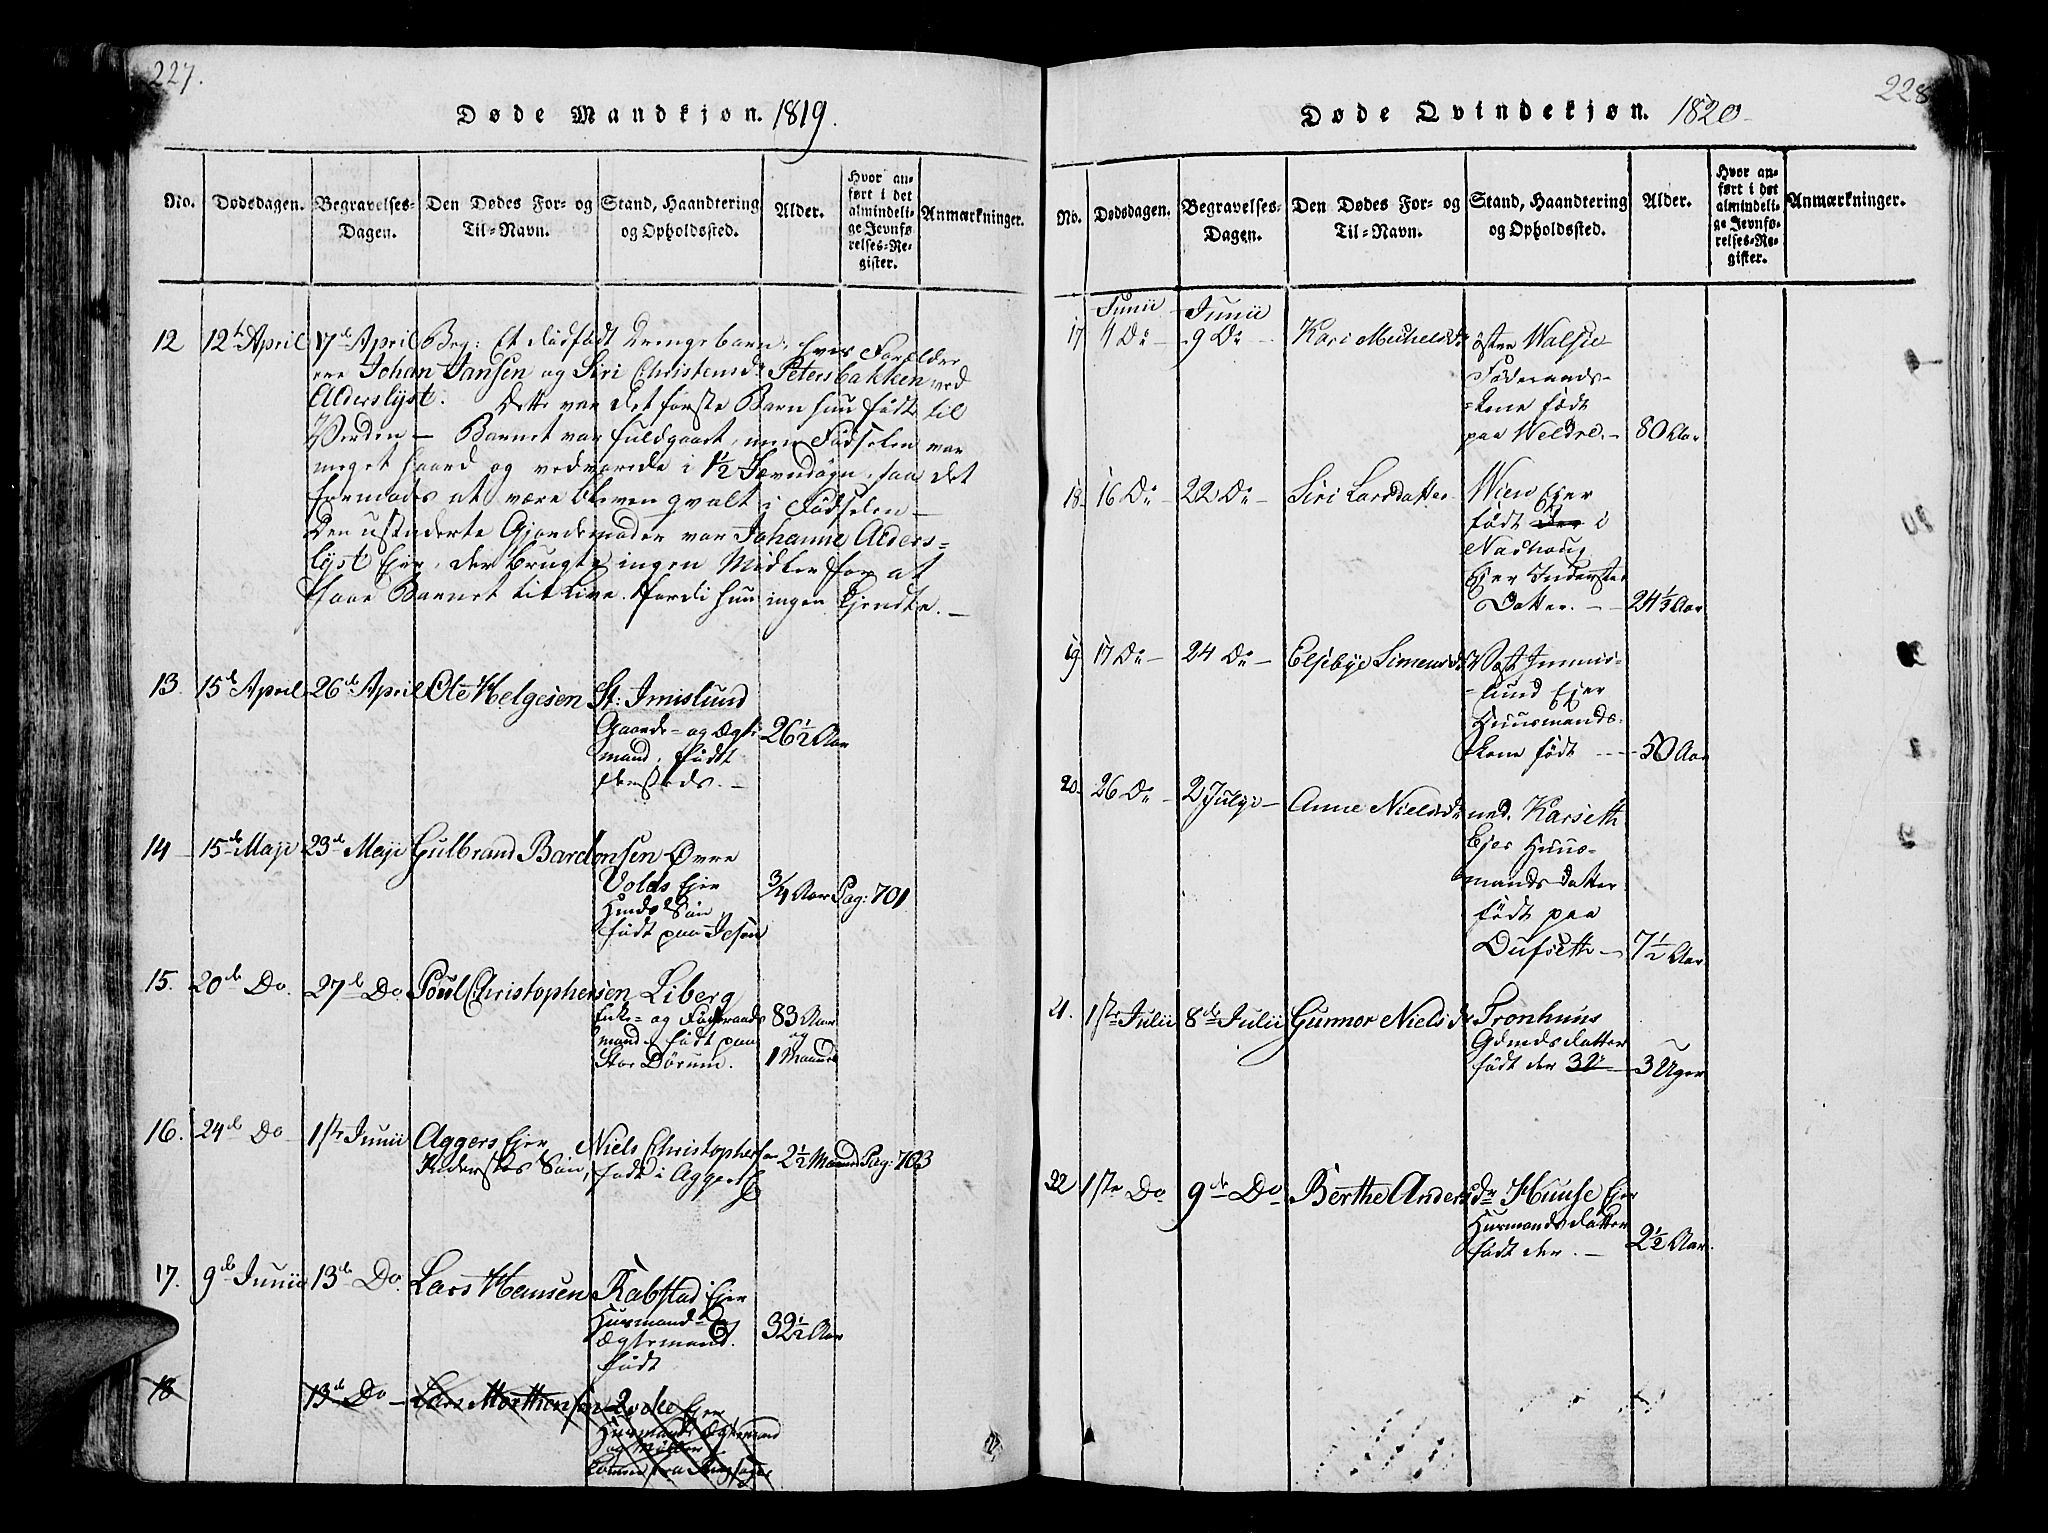 227.
Døde Mandkjøn. 1819.
No.
Dødsdagen.
Begravelses-
Dagen.
Den Dødes For- og
Til-Navn.
Stand, Haandtering
og Opholdssted.
Alder.
Hvor an-
ført i det
almindeli-
ge Jevnfø-
relses-Re-
gister.
Anmærkninger.
12 12te April 17de April Beg: Et dødfødt Drengebarn, hvis Forælder
ere Johan Jansen og Siri Christensdr Petersbakken ved
Alderslyst. Dette var det første Barn hun fødte til
Verden — Barnet var fuldgaaet, men Fødselen var
meget haard og vedvarede i 1 1/2 Jævndøgn, saa det
formodes at være bleven qvalt i Fødselen —
Den ustuderte Gjordemoder var Johanne Alders=
lyst Ejer, der brugte ingen Midler for at
faae Barnet til Live, fordi hun ingen kjendte. —
13 15de April 26de April Ole Helgesen St: Imislund
Gaard- og Ægte-
mand, født
sammesteds. — 26 1/2 Aar
14 15de Maji 23de Maji Gulbrand Bardonsen Øvre
Volds Ejer
Huusmds Søn
født paa 3/4 Aar Pag: 701
15. 20de Do. 27de Do Poul Christophersen Liberg
Enke- og Føderaads
mand, født paa
Stor Dørum. 83 Aar
og
1 Maaned
16. 24de Do 1ste Junii Aggers Ejer Niels Christophersen 2 1/2 Maaned Pag: 703
Inderstes Søn, født i Aggers Ejer
17. 9de Junii 13de Do. Lars Hansen Kabstad Ejer
Huusmand og
Ægtemand.
født 32 1/2 Aar
18 13de Do — Lars Morthensen Ejer
Huusmand, Ægtemand
og Møller
kommen fra Ringsager
228
Døde Qvindekjøn. 1820
No.
Dødsdagen.
Begravelses-
Dagen.
Den Dødes For- og
Til-Navn.
Stand, Haandtering
og Opholdssted.
Alder.
Hvor an-
ført i det
almindeli-
ge Jevnfø-
relses-Re-
gister.
Anmærkninger.
Junii Junii
17 4 Do — 9 Do — Kari Michelsdr østre Walsie
Føderaads-
kone født
paa Weldre. — 80 Aar
18. 16 Do — 22 Do — Siri Larsdatter Wien Ejer
født der i
Ejer Inderstes
Datter. — 24 1/2 Aar
19 17 Do — 24 Do — Elsebye Simensdr Vest Immis-
lund Ejer
Huusmands-
kone født — 50 Aar
20. 26 Do — 2 Julii — Anne Nielsdr ned. Karseth
Ejer Huus-
mands datter
født paa
Dufseth — 7 1/2 Aar
21. 1ste Julii 8de Julii Gunnor Nielsdr Tronhuus
Gdmds datter
født der 3 U 3 Uger
22 1ste Do 9de Do Berthe Andersdr Huuse Ejer
Huusmands datter
født der. — 2 1/2 Aar.